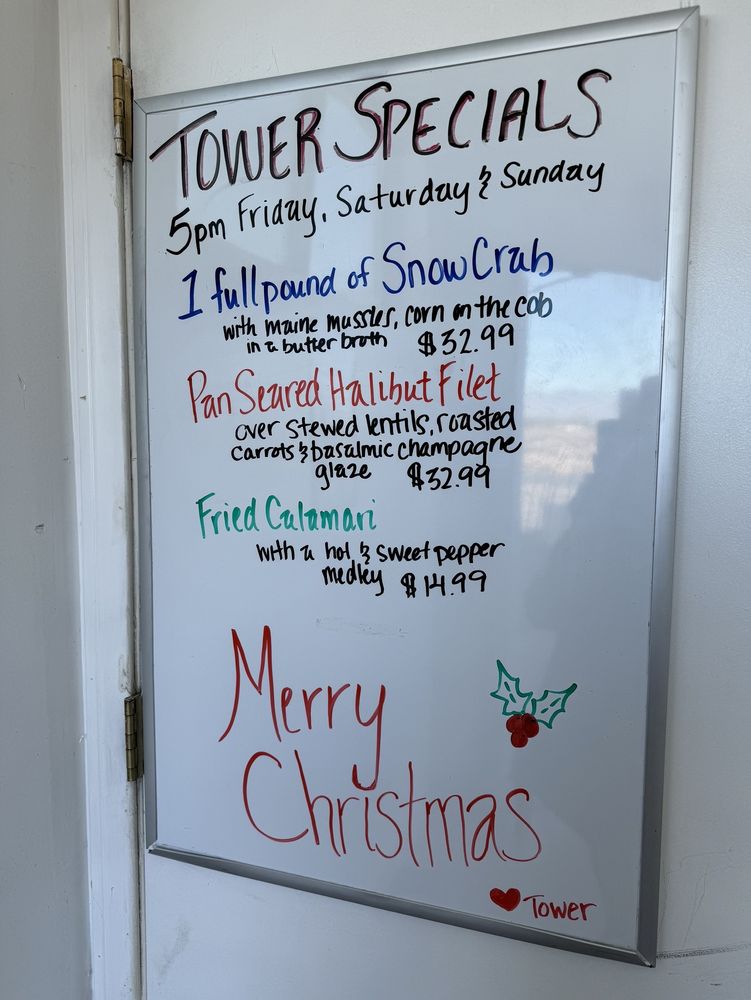 TOWER SPECIALS
5pm Friday, Saturday & Sunday
1 full pound of Snow Crab
with maine mussles, corn on the cob
in a butter broth $32.99
Pan Seared Halibut Filet
over stewed lentils, roasted
carrots & basalmic champagne
glaze $32.99
Fried Calamari
with a hot & sweet pepper
medley $14.99
Merry
Christmas
♥ Tower